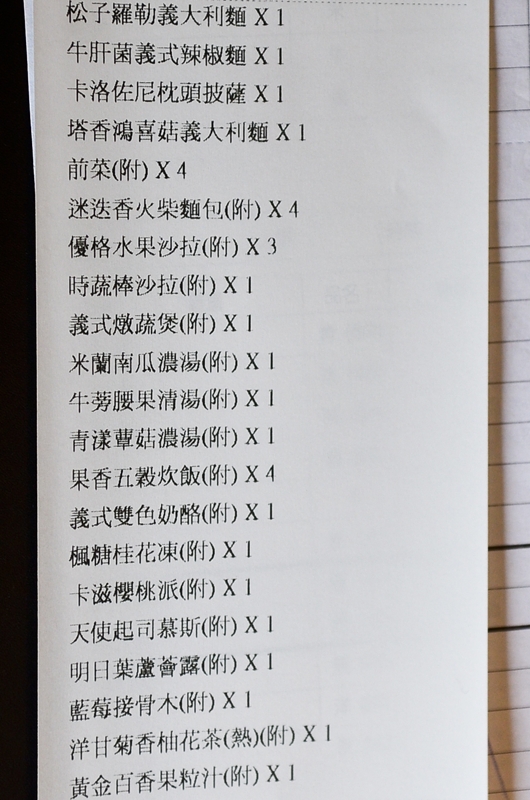 松子羅勒義大利麵 X 1
牛肝菌義式辣椒麵 X 1
卡洛佐尼枕頭披薩 X 1
塔香鴻喜菇義大利麵 X 1
前菜(附) X 4
迷迭香火柴麵包(附) X 4
優格水果沙拉(附) X 3
時蔬棒沙拉(附) X 1
義式燉蔬煲(附) X 1
米蘭南瓜濃湯(附) X 1
牛蒡腰果清湯(附) X 1
青漾蕈菇濃湯(附) X 1
果香五穀炊飯(附) X 4
義式雙色奶酪(附) X 1
楓糖桂花凍(附) X 1
卡滋櫻桃派(附) X 1
天使起司慕斯(附) X 1
明日葉蘆薈露(附) X 1
藍莓接骨木(附) X 1
洋甘菊香柚花茶(熱)(附) X 1
黃金百香果粒汁(附) X 1